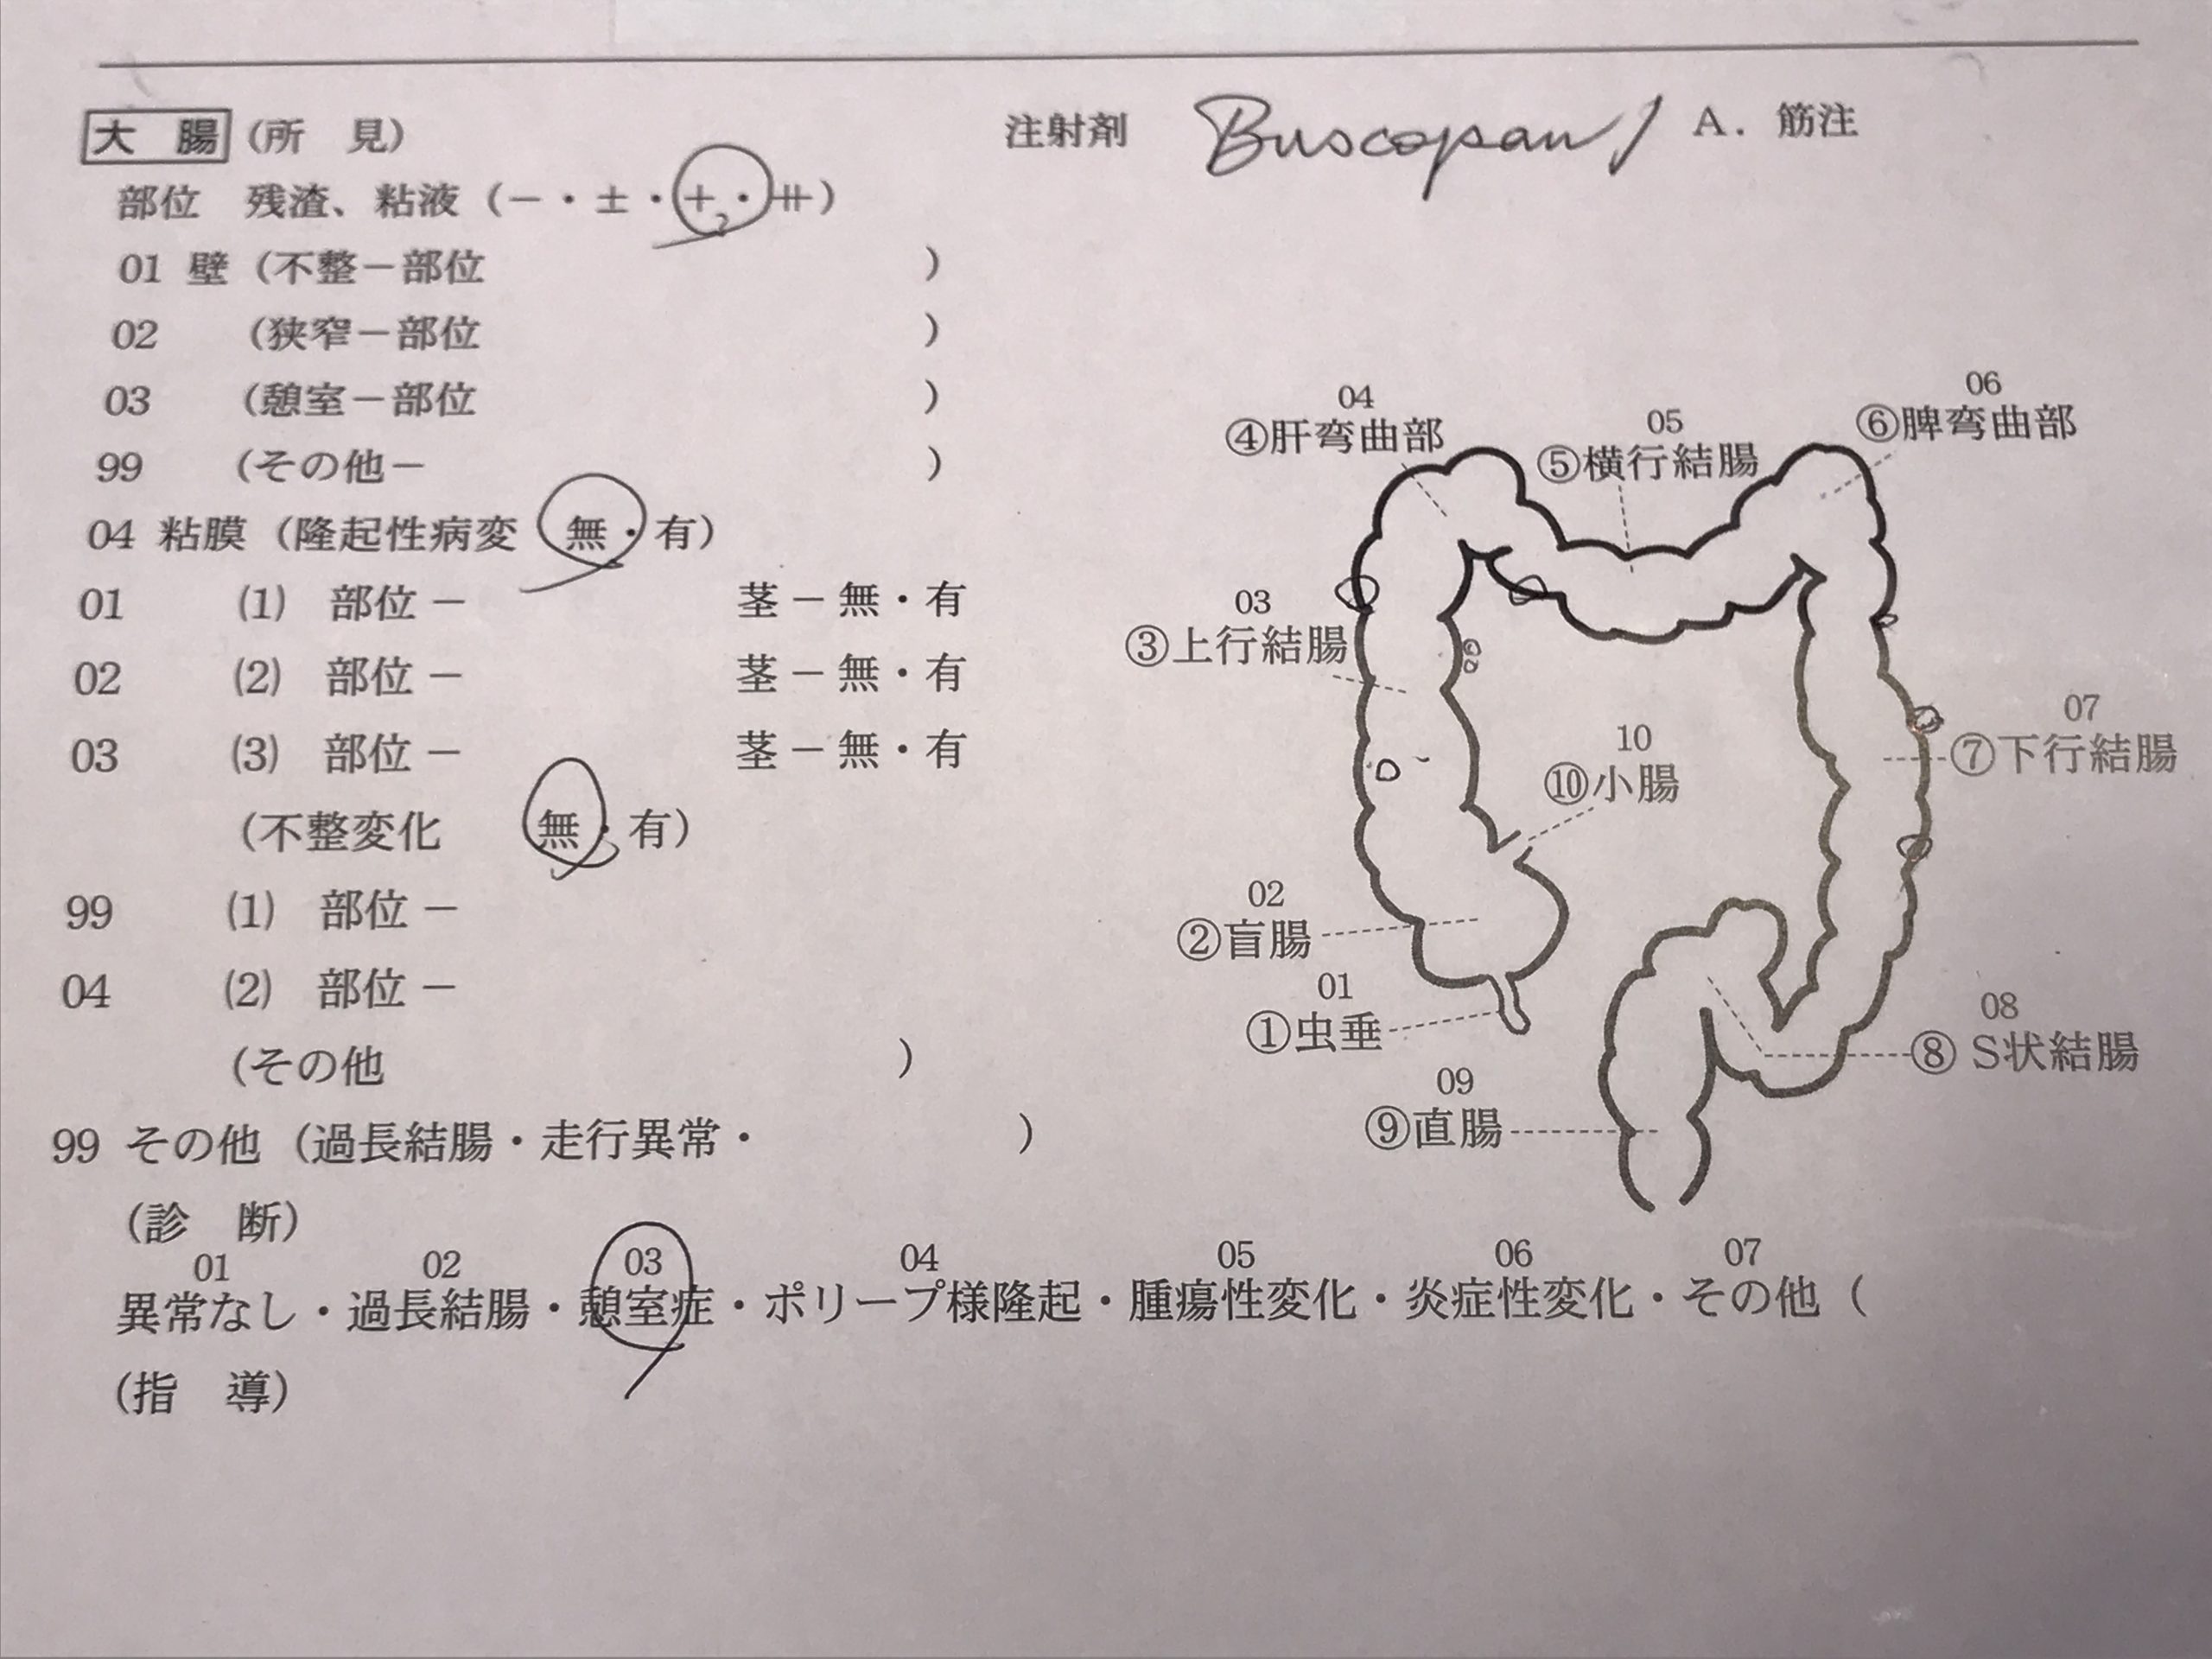 大　腸 (所　見)　注射剤　Buscopan 1 A. 筋注
部位　残渣、粘液 (－・±・＋・⧺)
01 壁 (不整－部位　)
02 (狭窄－部位　)
03 (憩室－部位　)
99 (その他－　)
04 粘膜 (隆起性病変　無・有)
01 (1) 部位－　茎－無・有
02 (2) 部位－　茎－無・有
03 (3) 部位－　茎－無・有
(不整変化　無・有)
99 (1) 部位－
04 (2) 部位－
(その他　)
99 その他 (過長結腸・走行異常・　)
04
④肝弯曲部
05
⑤横行結腸
06
⑥脾弯曲部
03
③上行結腸
10
⑩小腸
07
⑦下行結腸
02
②盲腸
01
①虫垂
08
⑧ S状結腸
09
⑨直腸
(診　断)
01 02 03 04 05 06 07
異常なし・過長結腸・憩室症・ポリープ様隆起・腫瘍性変化・炎症性変化・その他 (
(指　導)